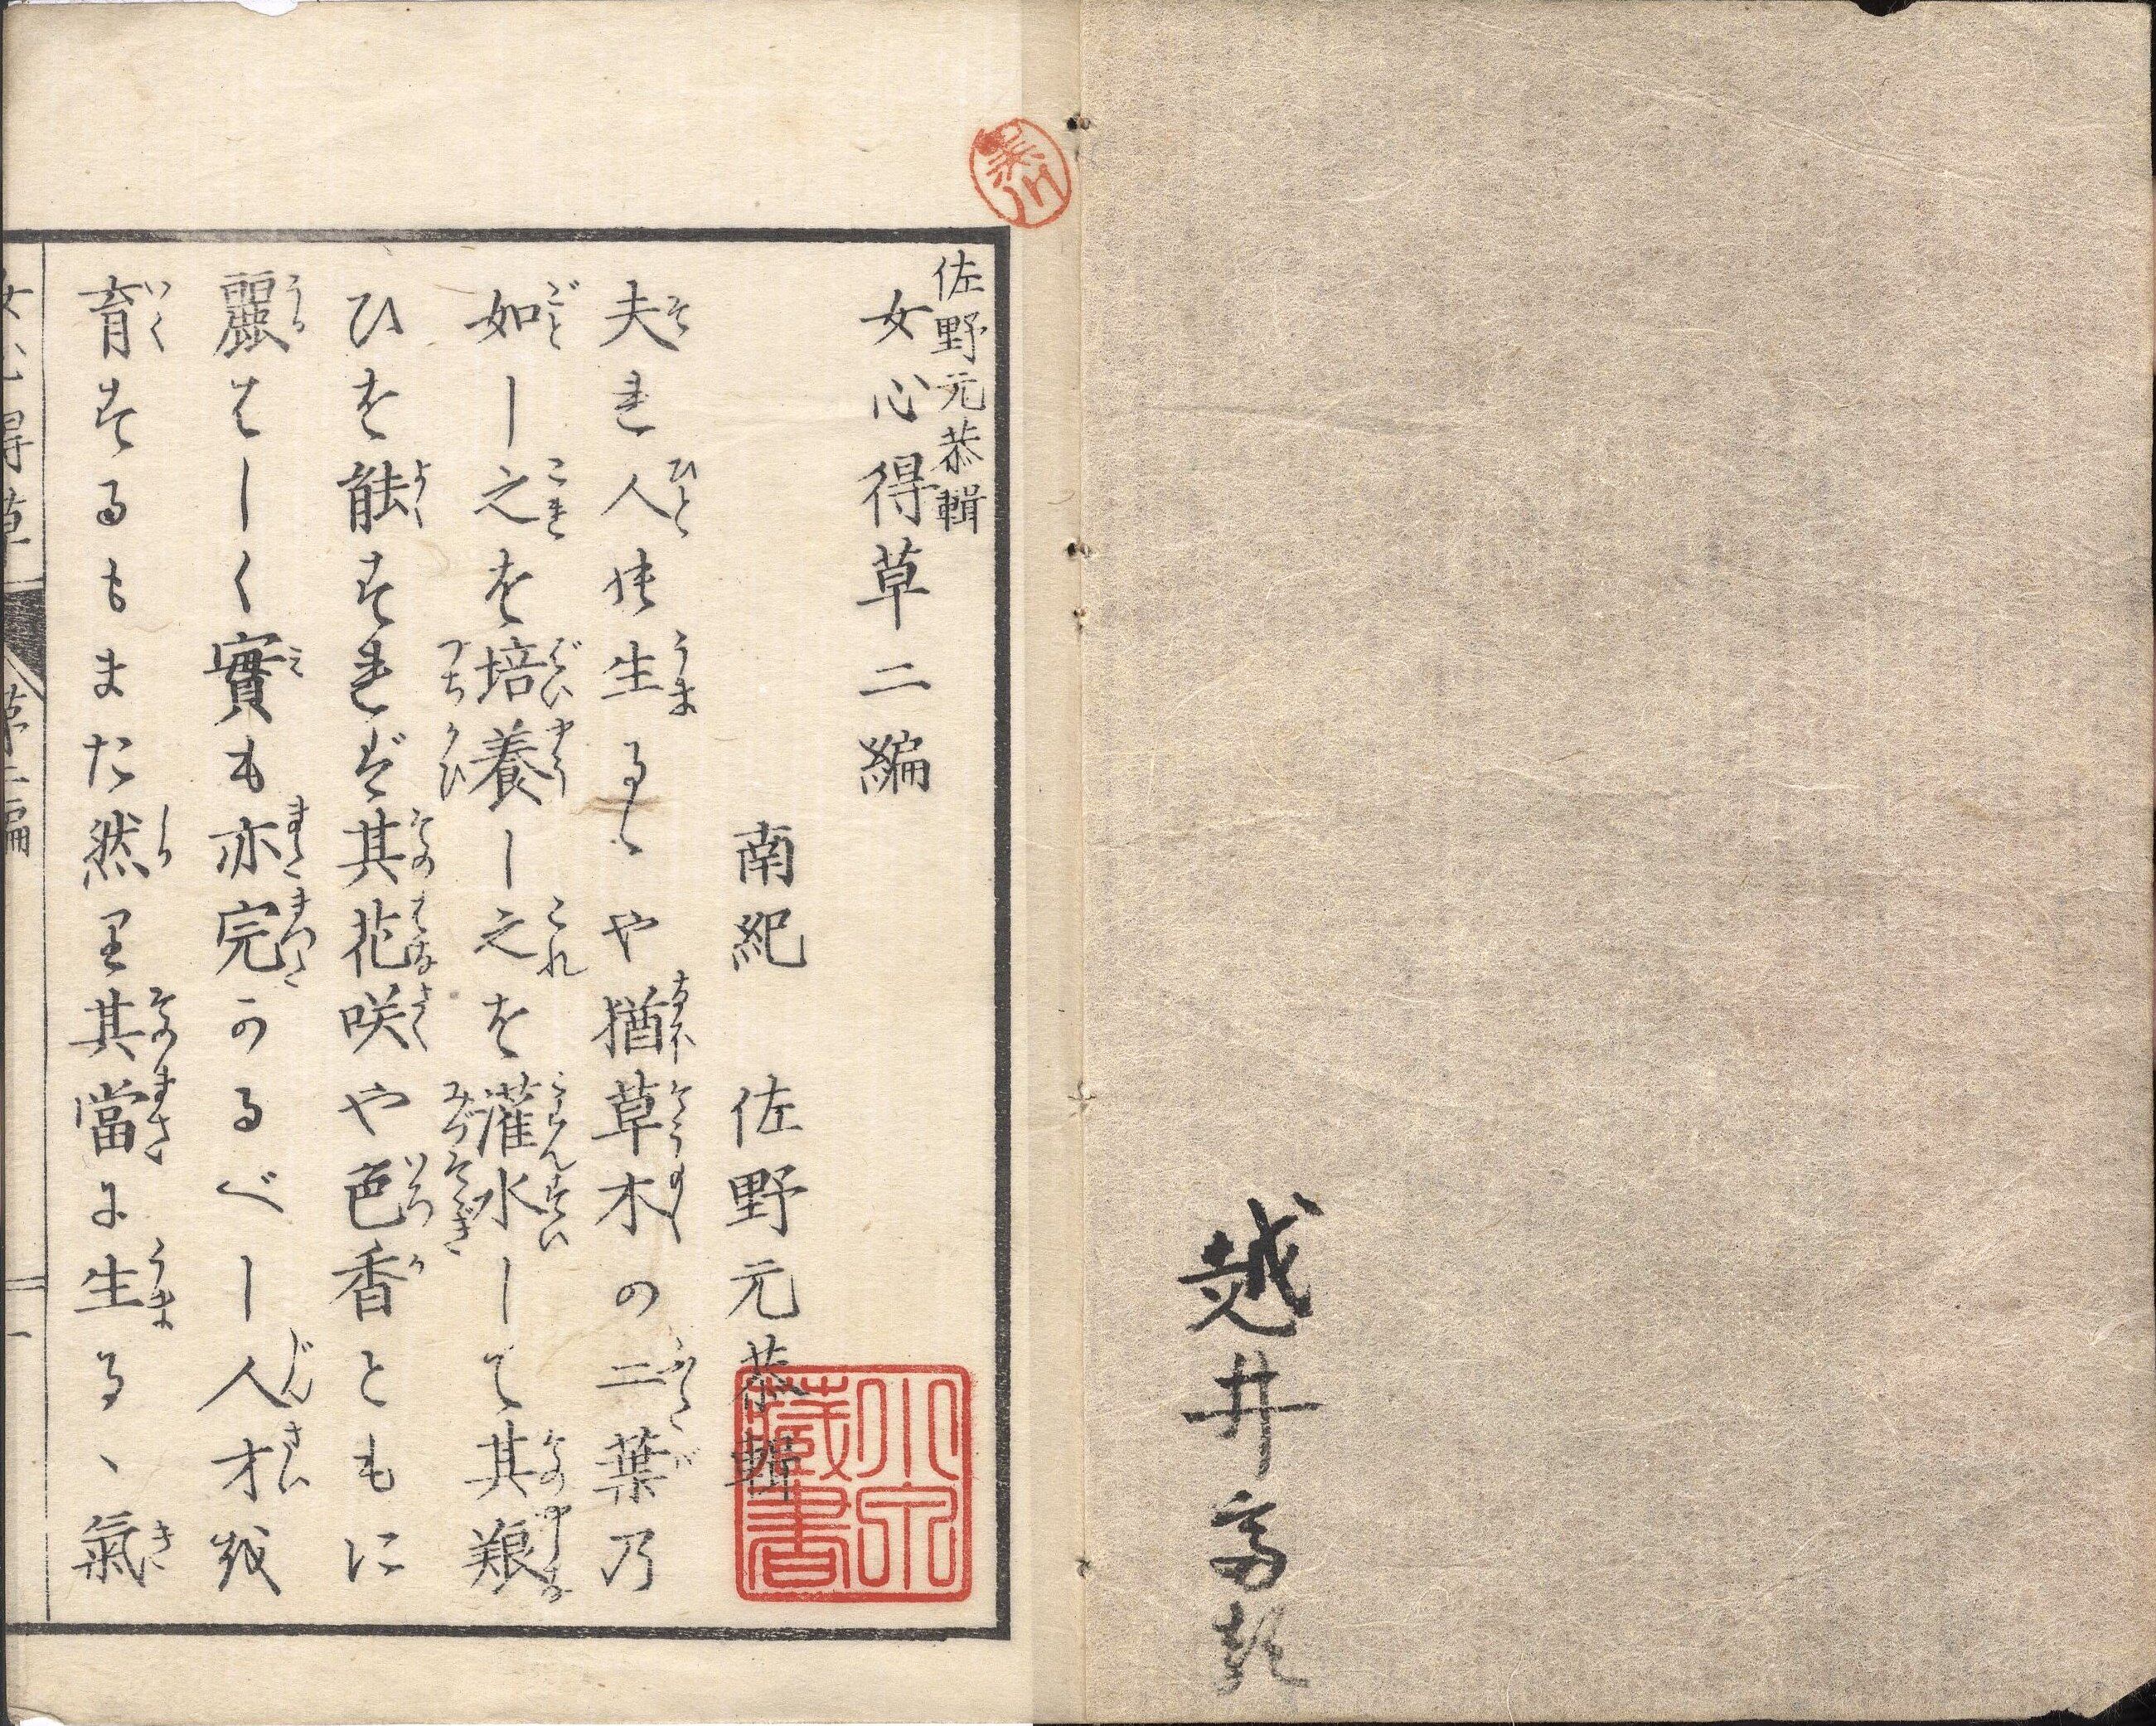 越井
佐野元恭輯
女心得草二編
南紀 佐野元恭輯
夫れ人の生るゝや猶草木の二葉乃
如し之を培養し之を灌水して其艱
ひを能すれば其花咲や色香ともに
麗はしく實も亦完かるべし人才の
育するもまた然り其當に生るゝ氣
小泉
藏書